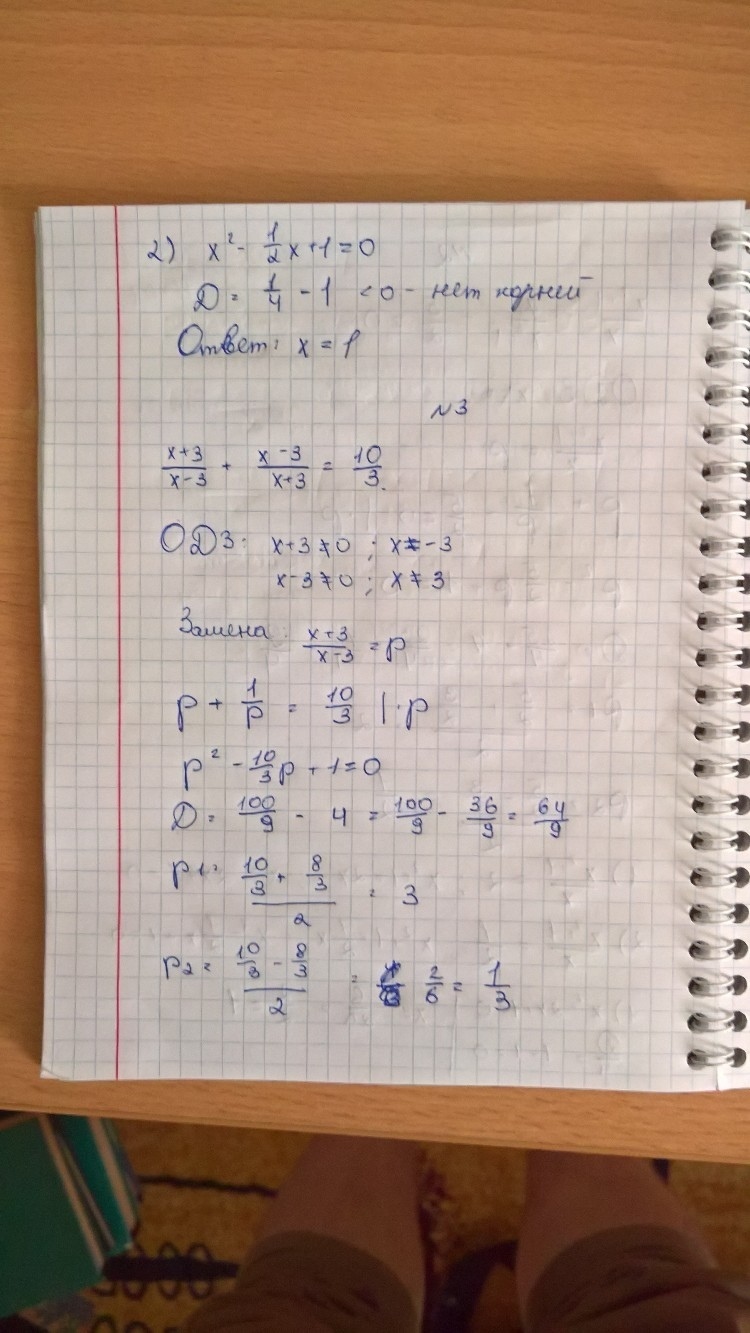 2) x² - 1/2 x + 1 = 0
D = 1/4 - 1 < 0 - нет корней
Ответ: x = 1
N3
(x+3)/(x-3) + (x-3)/(x+3) = 10/3.
ОДЗ: x+3≠0 ; x≠-3
x-3≠0 ; x≠3
Замена: (x+3)/(x-3) = p
p + 1/p = 10/3 |·p
p² - 10/3 p + 1 = 0
D = 100/9 - 4 = 100/9 - 36/9 = 64/9
p1 = (10/3 + 8/3)/2 = 3
p2 = (10/3 - 8/3)/2 = 2/6 = 1/3